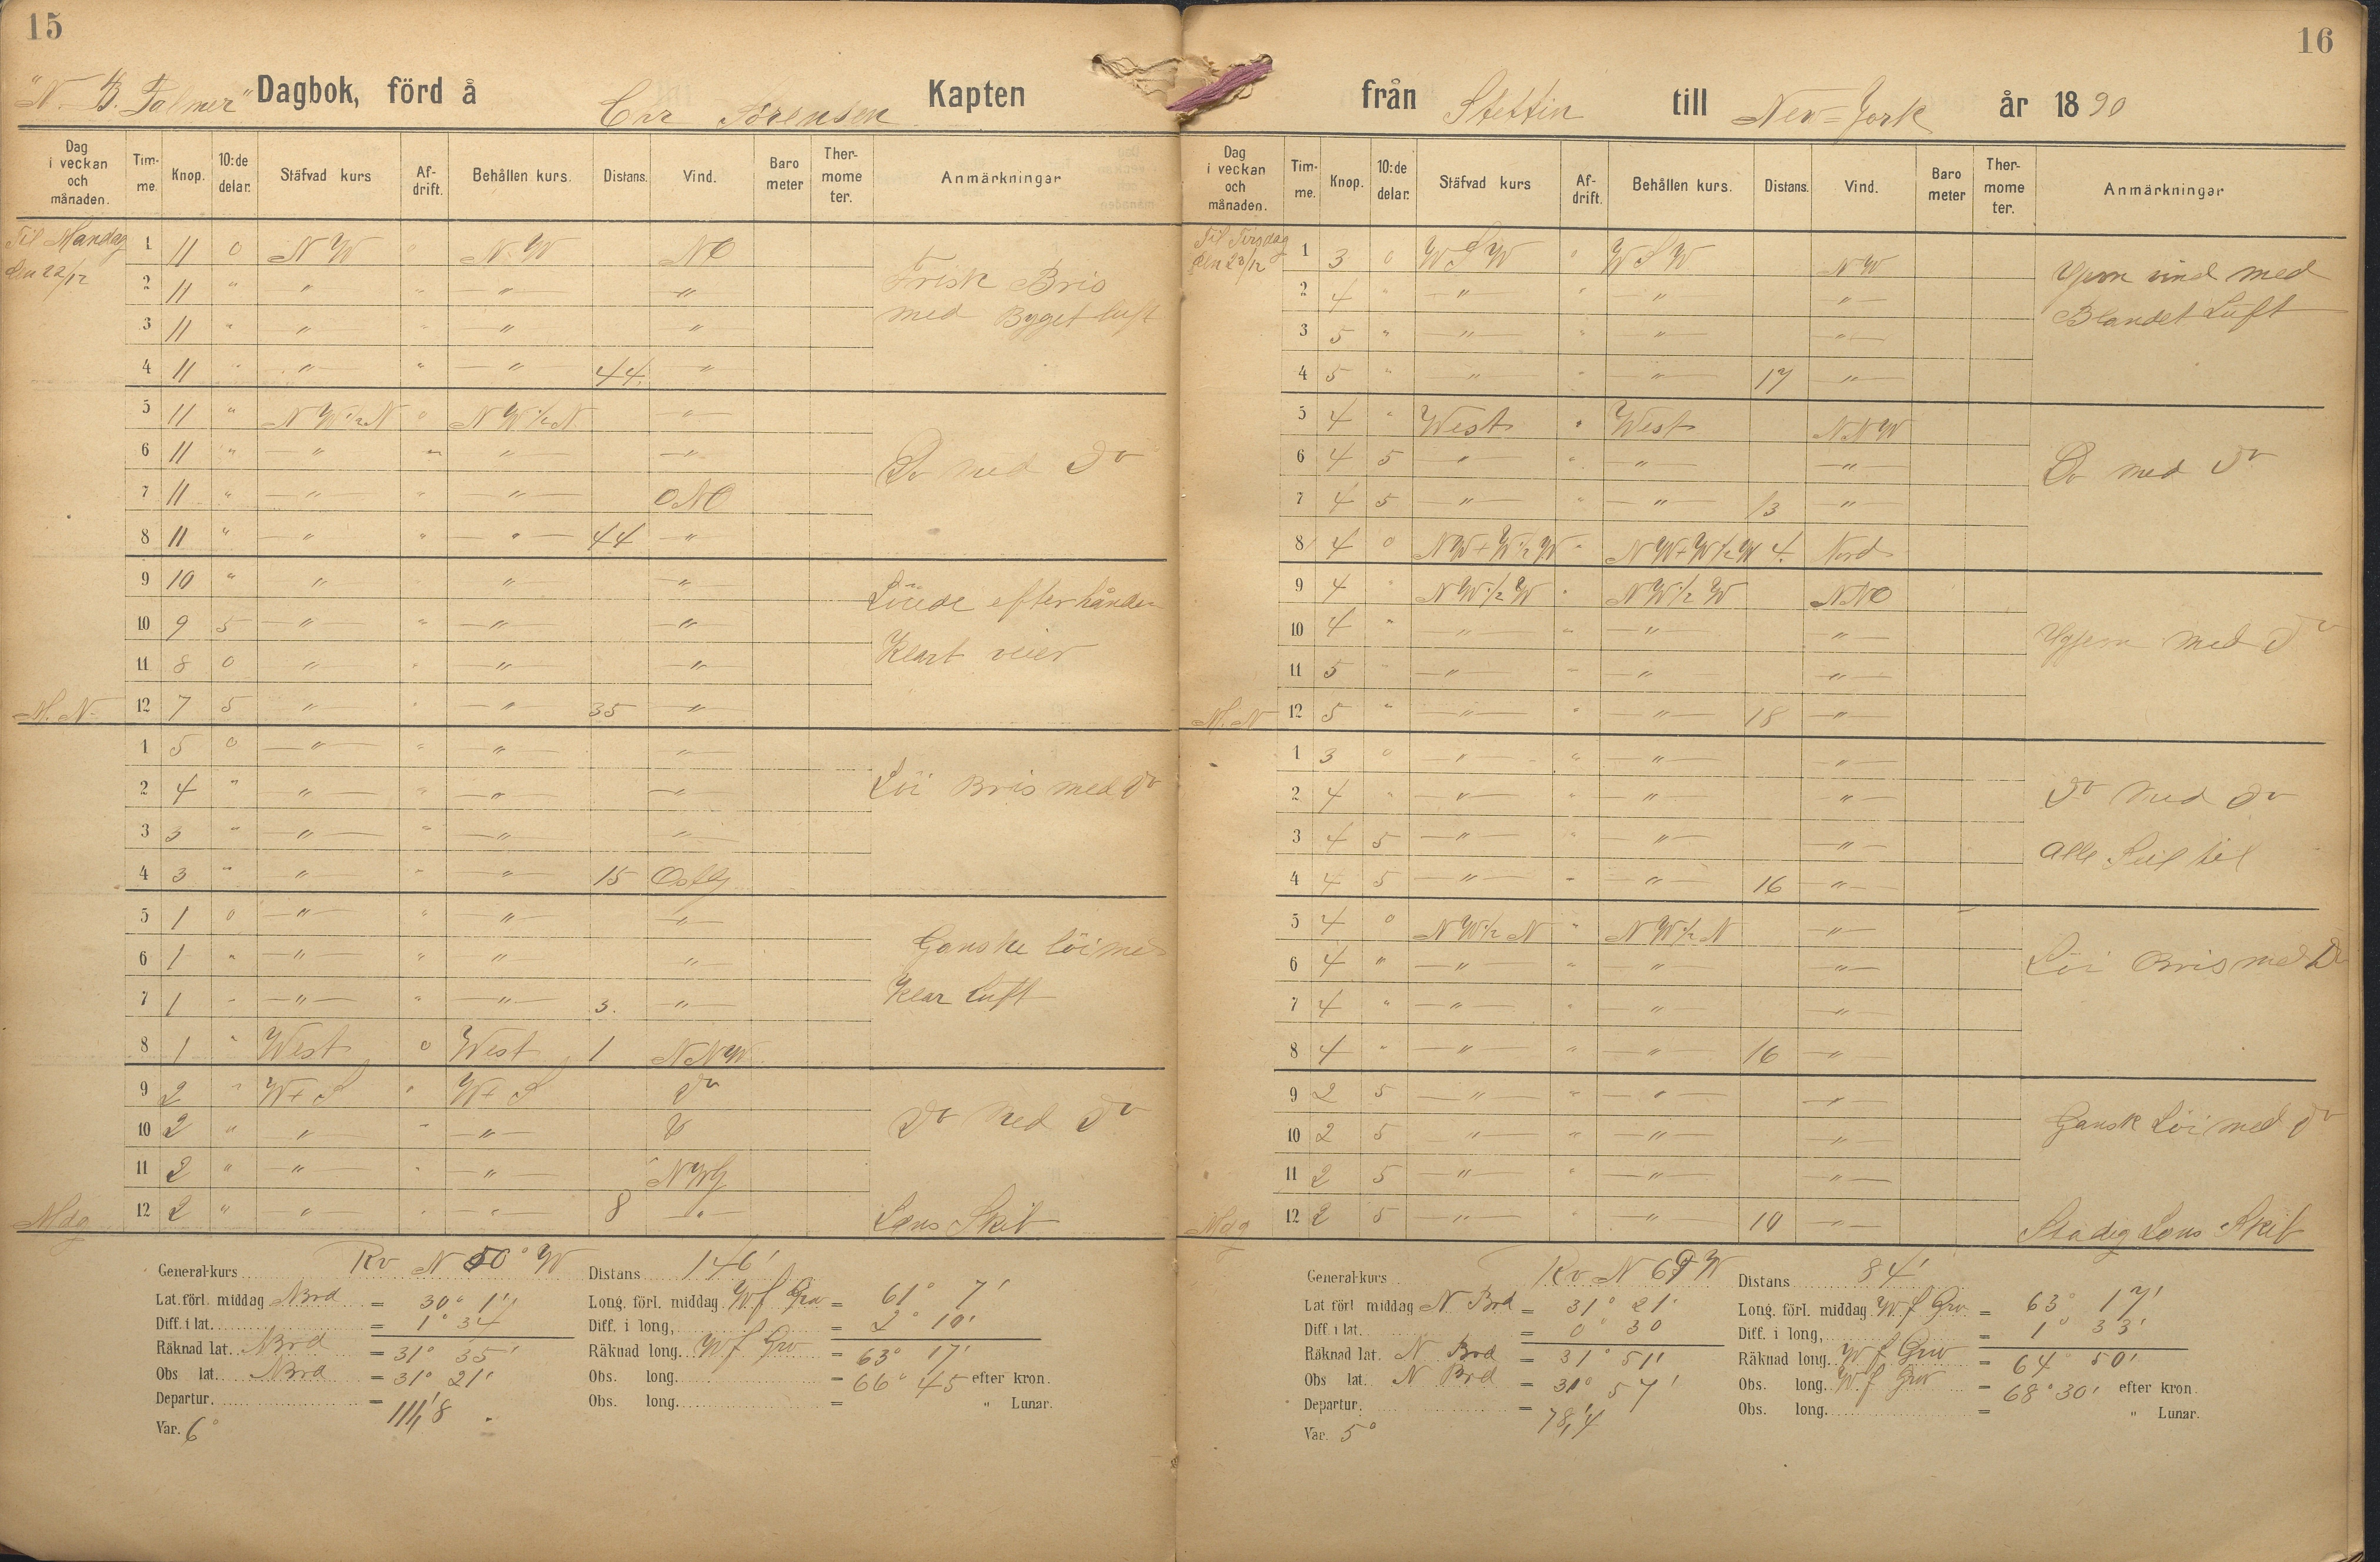 15
"N. B. Palmer" Dagbok, förd å Chr Sörensen Kapten
Dag i veckan och månaden. Timme. Knop. 10:de delar. Stäfvad kurs Afdrift. Behållen kurs. Distans. Vind. Barometer Thermometer. Anmärkningar
Til Mandag 1 11 0 N W " N. W NO
den 22/12
2 11 " " " — " — — " — Frisk Bris
3 11 " — " — " — " — — " — med Byget luft
4 11 " — " — " — " — 44. — " —
5 11 " N W 1/2 N " N W 1/2 N — " —
6 11 " — " — " — " — — " — Do med do
7 11 " — " — " — " — ONO
8 11 " — " — " — " — 44 — " —
9 10 " — " — " — " — — " — Löiede efterhånden
10 9 5 — " — " — " — — " —
11 8 0 — " — " — " — — " — Klart veier
M. N. 12 7 5 — " — " — " — 35 — " —
1 5 0 — " — " — " — — " —
2 4 " — " — " — " — — " — Löi Bris med do
3 3 " — " — " — " — — " —
4 3 " — " — " — " — 15 Ostlg
5 1 0 — " — " — " — — " —
6 1 " — " — " — " — — " — Ganske löi med
7 1 " — " — " — " — 3. — " — Klar Luft
8 1 " West 0 West 1 NNW
9 2 " W + S " W + S do
10 2 " — " — " — " — do do med do
11 2 " — " — " — " — NWlg
Mdg 12 2 " — " — " — " — 8 — " — Læns Skib
General-kurs Rv N 50° W Distans 146'
Lat. förl. middag Nord = 30° 1' Long. förl. middag W f Grw = 61° 7'
Diff. i lat. = 1° 34 Diff. i long, = 2° 10'
Räknad lat. Nord = 31° 35' Räknad long. W f Grw = 63° 17'
Obs lat. Nord = 31° 21' Obs. long. = 66° 45 efter kron.
Departur. = 111,8 Obs. long. = " Lunar.
Var. 6°
16
från Stettin till New=York år 1890
Dag i veckan och månaden. Timme. Knop. 10:de delar. Stäfvad kurs Afdrift. Behållen kurs. Distans. Vind. Barometer Thermometer. Anmärkningar
Til Tirsdag 1 3 0 W S W " W S W NW
den 23/12
2 4 " — " — " — " — — " — vind med
3 5 " — " — " — " — — " — Blandet Luft
4 5 " — " — " — " — 17 — " —
5 4 " West " West NNW
6 4 5 — " — " — " — — " — Do med do
7 4 5 — " — " — " — 13 — " —
8 4 0 NW + W 1/2 W " NW + W 1/2 W 4. Nord
9 4 " NW 1/2 W " NW 1/2 W NNO
10 4 " — " — " — " — — " — med do
11 5 " — " — " — " — — " —
M. N 12 5 " — " — " — " — 18 — " —
1 3 0 — " — " — " — — " —
2 4 " — " — " — " — — " — do med do
3 4 5 — " — " — " — — " — alle Seil til
4 4 5 — " — " — " — 16 — " —
5 4 0 NW 1/2 N " NW 1/2 N — " —
6 4 " — " — " — " — — " — Löi Bris med Do
7 4 " — " — " — " — — " —
8 4 " — " — " — " — 16 — " —
9 2 5 — " — " — " — — " —
10 2 5 — " — " — " — — " — Gansk Löi med do
11 2 5 — " — " — " — — " —
Mdg 12 2 5 — " — " — " — 10 — " — Stadig Læns Skib
General-kurs Rv N 69 W Distans 84'
Lat förl middag N Brd = 31° 21' Long. förl. middag W f Grw = 63° 17'
Diff i lat. = 0° 30 Diff. i long, = 1° 33'
Räknad lat. N Brd = 31° 51' Räknad long. W f Grw = 64° 50'
Obs lat. N Brd = 31° 57' Obs. long. W f Grw = 68° 30' efter kron.
Departur. = 78,4 Obs. long. = " Lunar.
Var. 5°